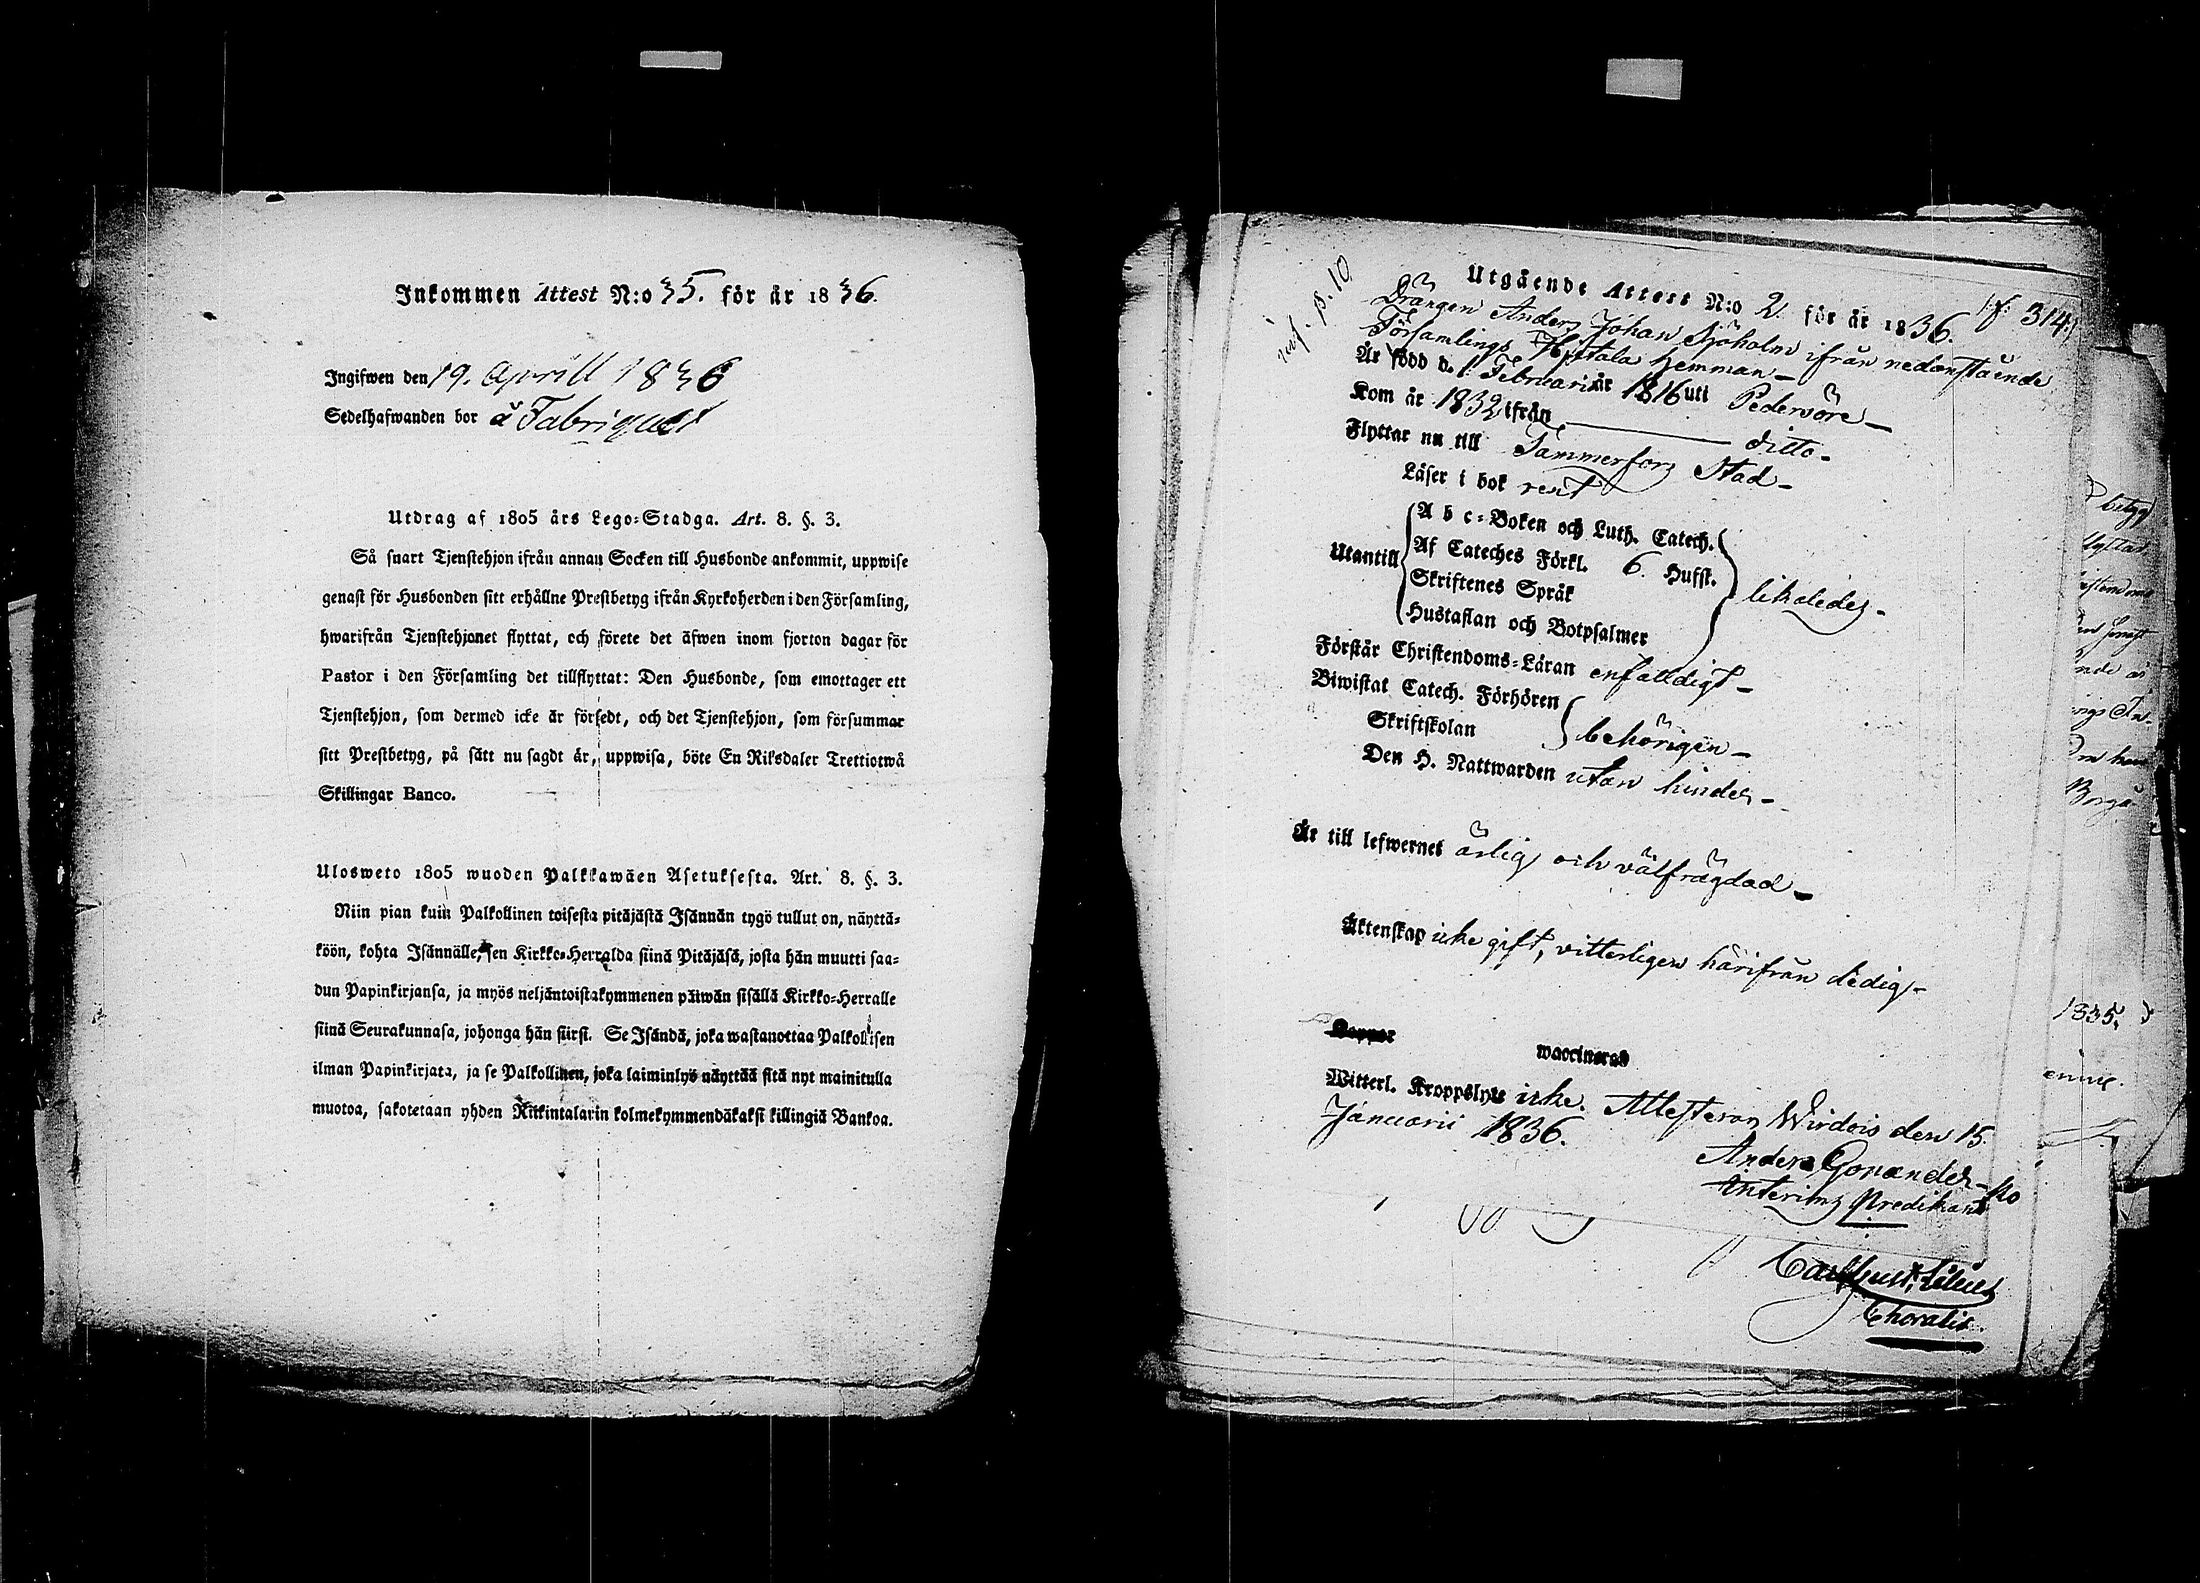 Inkommen Attest N:o 35. för år 1836.
Ingifwen den 19. Aprill 1836
Sedelhafwanden bor å Fabriquet
Utdrag af 1805 års Lego-Stadga. Art. 8. §. 3.
Så snart Tjenstehjon ifrån annan Socken till Husbonde ankommit, uppwise
genast för Husbonden sitt erhållne Prestbetyg ifrån Kyrkoherden i den Församling,
hwarifrån Tjenstehjonet flyttat, och förete det äfwen inom fjorton dagar för
Pastor i den Församling det tillflyttat: Den Husbonde, som emottager ett
Tjenstehjon, som dermed icke är försedt, och det Tjenstehjon, som försummar
sitt Prestbetyg, på sätt nu sagdt är, uppwisa, böte En Riksdaler Trettiotwå
Skillingar Banco.
Ulosweto 1805 wuoden Palkkawäen Asetuksesta. Art. 8. §. 3.
Niin pian kuin Palkollinen toisesta pitäjästä Isännän tygö tullut on, näyttä-
köön, kohta Isännälle, sen Kirkko-Herralda siinä Pitäjäsä, josta hän muutti saa-
dun Papinkirjansa, ja myös neljäntoistakymmenen päiwän sisällä Kirkko-Herralle
siinä Seurakunnasa, johonga hän siirsi. Se Isändä, joka wastanottaa Palkollisen
ilman Papinkirjata, ja se Palkollinen, joka laiminlyö näyttää sitä nyt mainitulla
muotoa, sakotetaan yhden Riikintalarin kolmekymmendäkaksi killingiä Bankoa.
inf. p. 10
Utgående Attest N:o 2. för år 1836. f: 314:
Drängen Anders Johan Sjöholm ifrån nedanstående
Församlings Hjitala Hemman-
Är född d. 1. Februarii år 1816 uti Pedersöre-
Kom år 1832 ifrån ditto-
Flyttar nu till Tammerfors Stad-
Läser i bok rent
Utantill
A b c-Boken och Luth. Catech.
Af Cateches Förkl. 6. Hufst.
Skriftenes Språk
Hustaflan och Botpsalmer
likaledes-
Förstår Christendoms-Läran enfaldigt-
Biwistat Catech. Förhören
Skriftskolan
behörigen-
Den H. Nattwarden utan hinder-
Är till lefwernet ärlig och välfrägdad-
Äktenskap icke gift, vitterligen härifrån ledig-
Koppor waccinerad
Witterl. Kroppslyte icke. Attesteras Wirdois den 15.
Januarii 1836.
Anders
Interims Predikant
Choralis.
betyg
1835.
Borgå